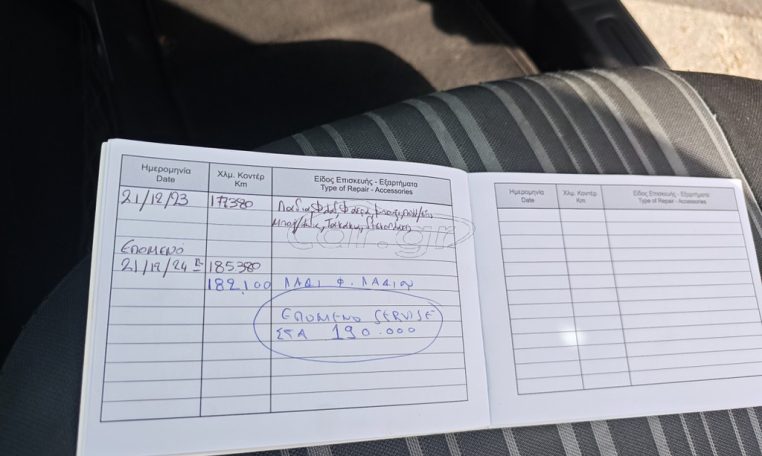 Ημερομηνία Χλμ. Κοντέρ Είδος Επισκευής - Εξαρτήματα
Date Km Type of Repair - Accessories
21/12/23 177380
car.gr
ΕΠΟΜΕΝΟ
21/12/24 185380
182,100 ΛΑΔΙ Φ. ΛΑΔΙΟΥ
ΕΠΟΜΕΝΟ SERVISE
ΣΤΑ 190.000
Ημερομηνία Χλμ. Κοντέρ Είδος Επισκευής - Εξαρτήματα
Date Km Type of Repair - Accessories